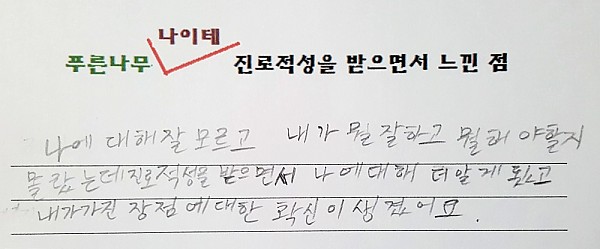 나이테
푸른나무 진로적성을 받으면서 느낀 점
나에 대해 잘 모르고 내가 뭘 잘하고 뭘해 야할지
몰랐는데 진로적성을 받으면서 나에대해 더알게 됬고
내가가진 장점에대한 확신이 생겼어요.